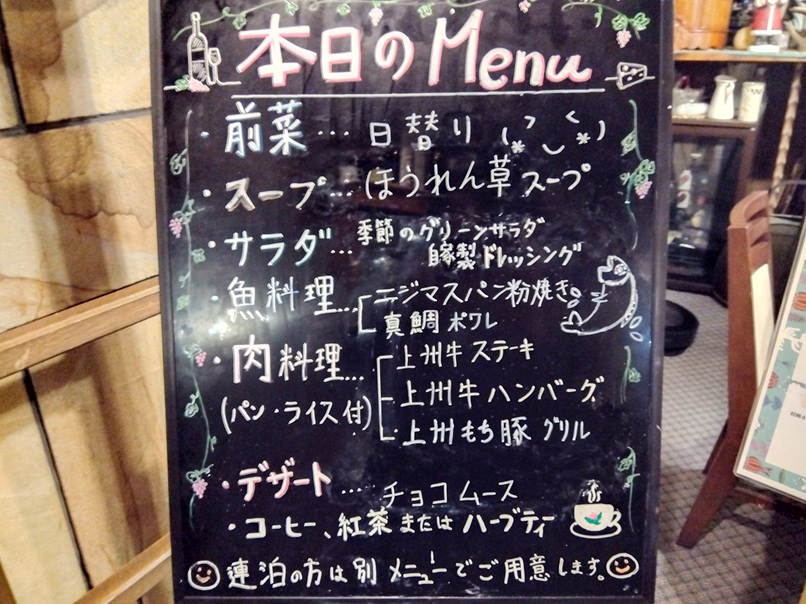 本日のMenu
・前菜…日替り
・スープ…ほうれん草スープ
・サラダ…季節のグリーンサラダ
自家製ドレッシング
・魚料理…ニジマスパン粉焼き
真鯛ポワレ
・肉料理…上州牛ステーキ
(パン・ライス付) 上州牛ハンバーグ
上州もち豚グリル
・デザート……チョコムース
・コーヒー、紅茶またはハーブティ
連泊の方は別メニューでご用意します。